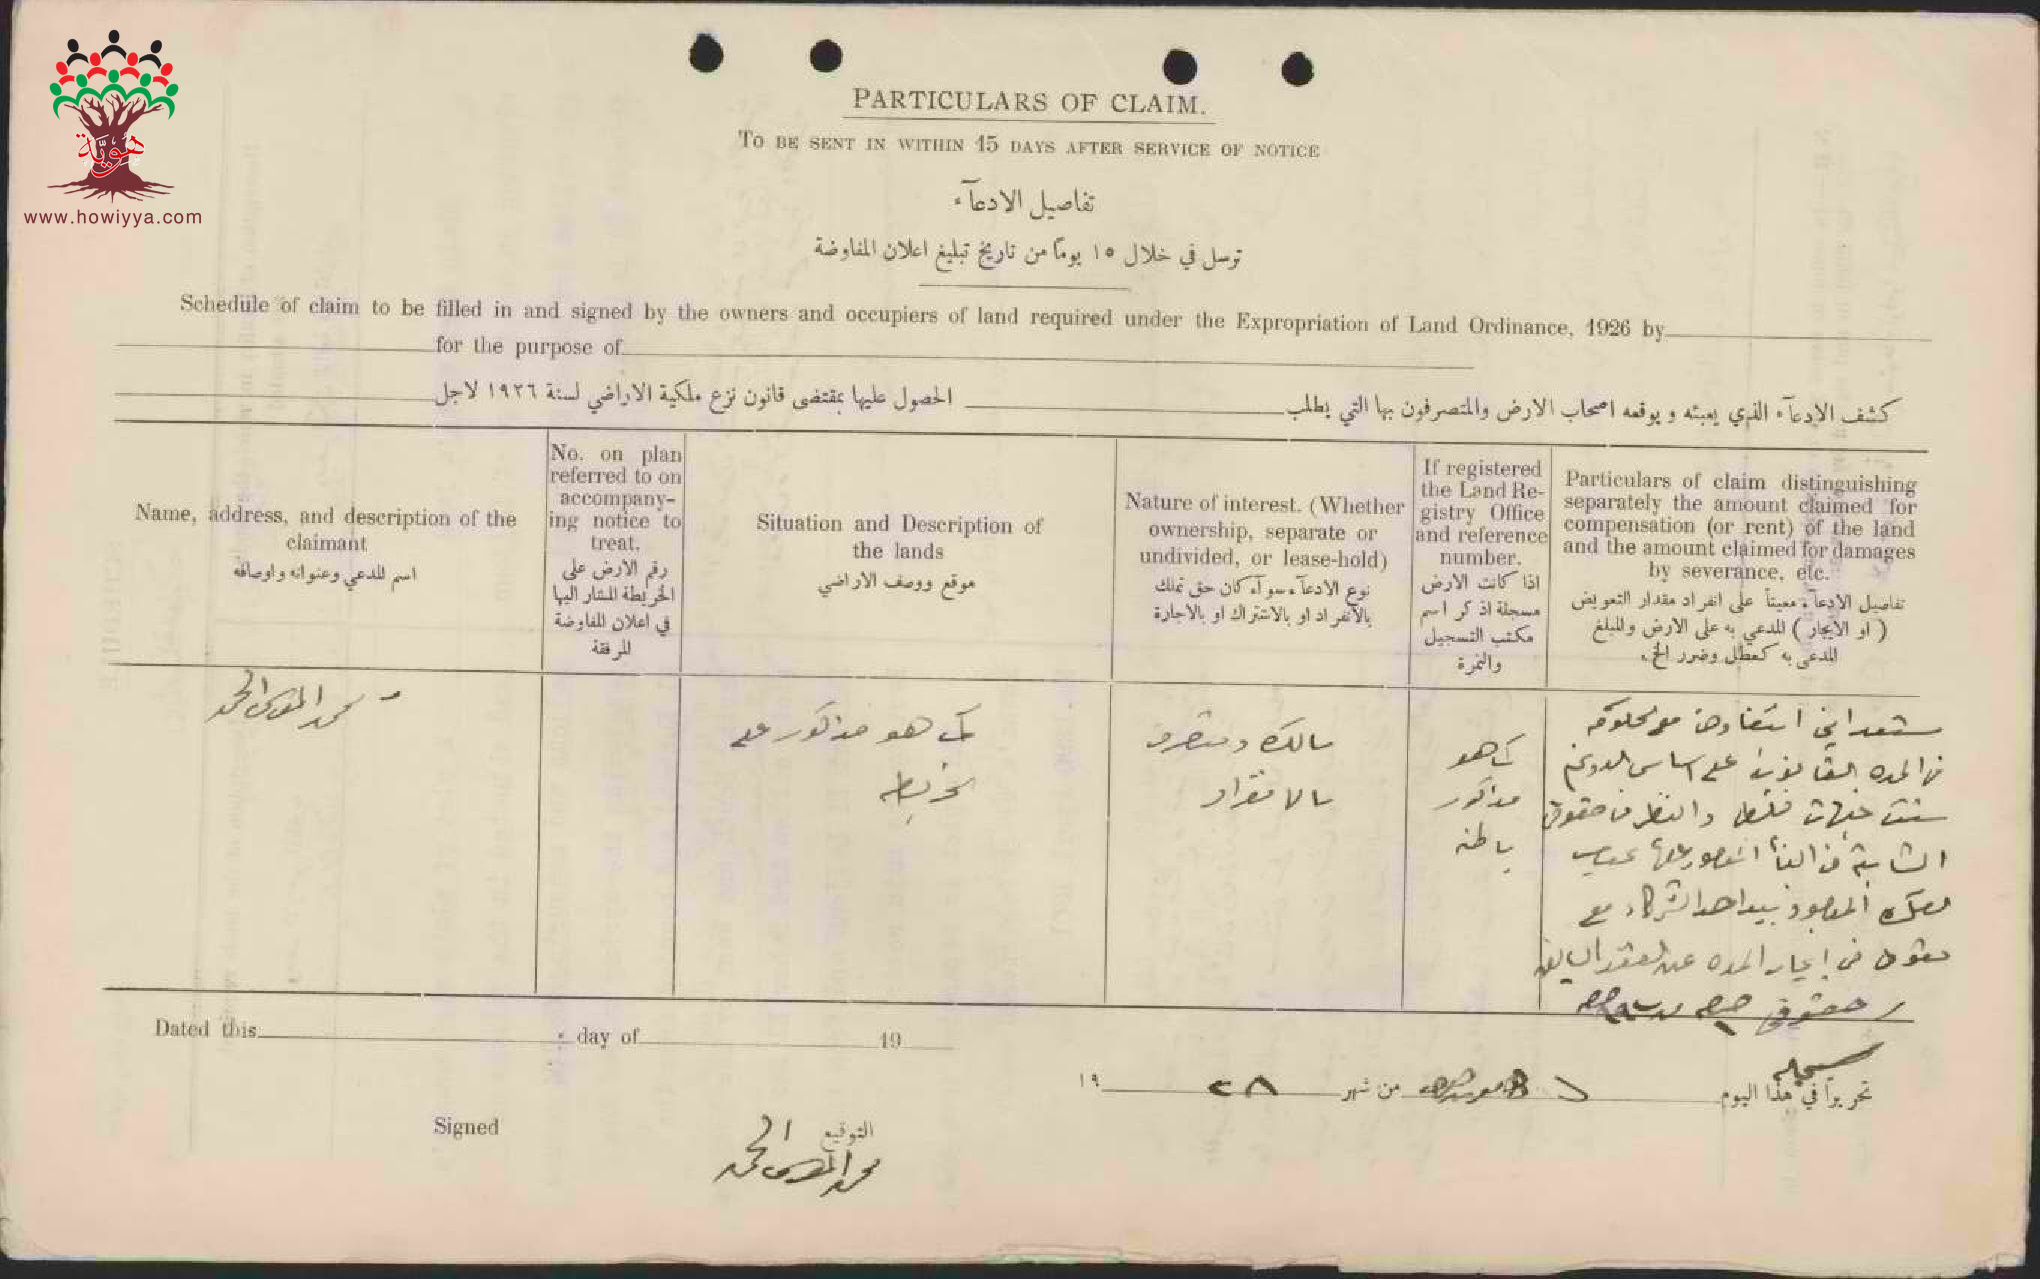 هوية
www.howiyya.com
PARTICULARS OF CLAIM.
TO BE SENT IN WITHIN 15 DAYS AFTER SERVICE OF NOTICE
تفاصيل الادعآء
ترسل في خلال ١٥ يوماً من تاريخ تبليغ اعلان المفاوضة
Schedule of claim to be filled in and signed by the owners and occupiers of land required under the Expropriation of Land Ordinance, 1926 by
for the purpose of
كشف الادعآء الذي يعبئه ويوقعه اصحاب الارض والمتصرفون بها التي يطلب
الحصول عليها بمقتضى قانون نزع ملكية الاراضي لسنة ١٩٢٦ لاجل
Name, address, and description of the
claimant
اسم المدعي وعنوانه واوصافه
No. on plan
referred to on
accompany-
ing notice to
treat.
رقم الارض على
الخريطة المشار اليها
في اعلان المفاوضة
المرفقة
Situation and Description of
the lands
موقع ووصف الاراضي
Nature of interest. (Whether
ownership, separate or
undivided, or lease-hold)
نوع الادعآء سوآء كان حق تملك
بالانفراد او بالاشتراك او بالاجارة
If registered
the Land Re-
gistry Office
and reference
number.
اذا كانت الارض
مسجلة اذكر اسم
مكتب التسجيل
والنمرة
Particulars of claim distinguishing
separately the amount claimed for
compensation (or rent) of the land
and the amount claimed for damages
by severance, etc.
تفاصيل الادعآء معيناً على انفراد مقدار التعويض
(او الايجار) المدعي به على الارض والمبلغ
المدعى به كعطل وضرر الخ.
محمد الموسى المحمد
كما هو مذكور على
خريطه
مالك ومتصرف
بالانفراد
كما هو
مذكور
باطنه
مستعد اني اتفاوض مع الحكومه
في المده القانونيه على اساس الدونم
ستت جنيهات فلسطيني
Dated this day of 19
تحريراً في هذا اليوم من شهر ٢٨ ١٩
Signed
التوقيع
محمد الموسى المحمد